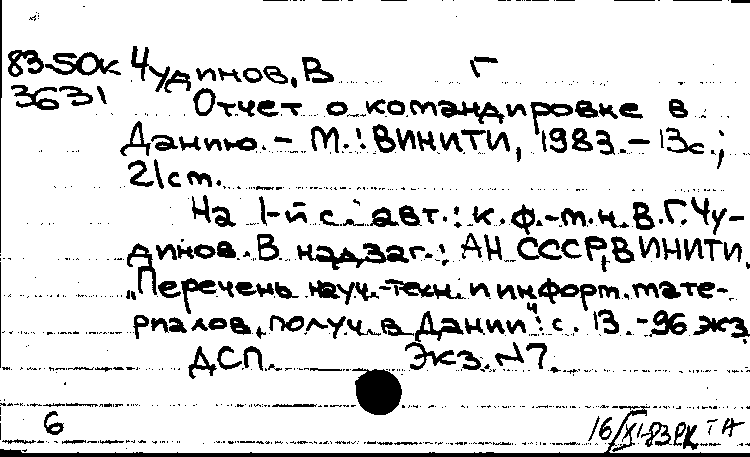 83-50к Чудинов, В Г
3631 Отчет о командировке в
Данию. - М.: ВИНИТИ, 1983. - 13с.;
21 cm.
На 1-й с.: авт.: к.ф.-м.н. В.Г. Чу-
динов. В надзаг.: АН СССР, ВИНИТИ.
"Перечень науч.-техн. и информ. мате-
риалов, получ. в Дании": с. 13. - 96 экз
ДСП. Экз. N7.
6 16/XI-83